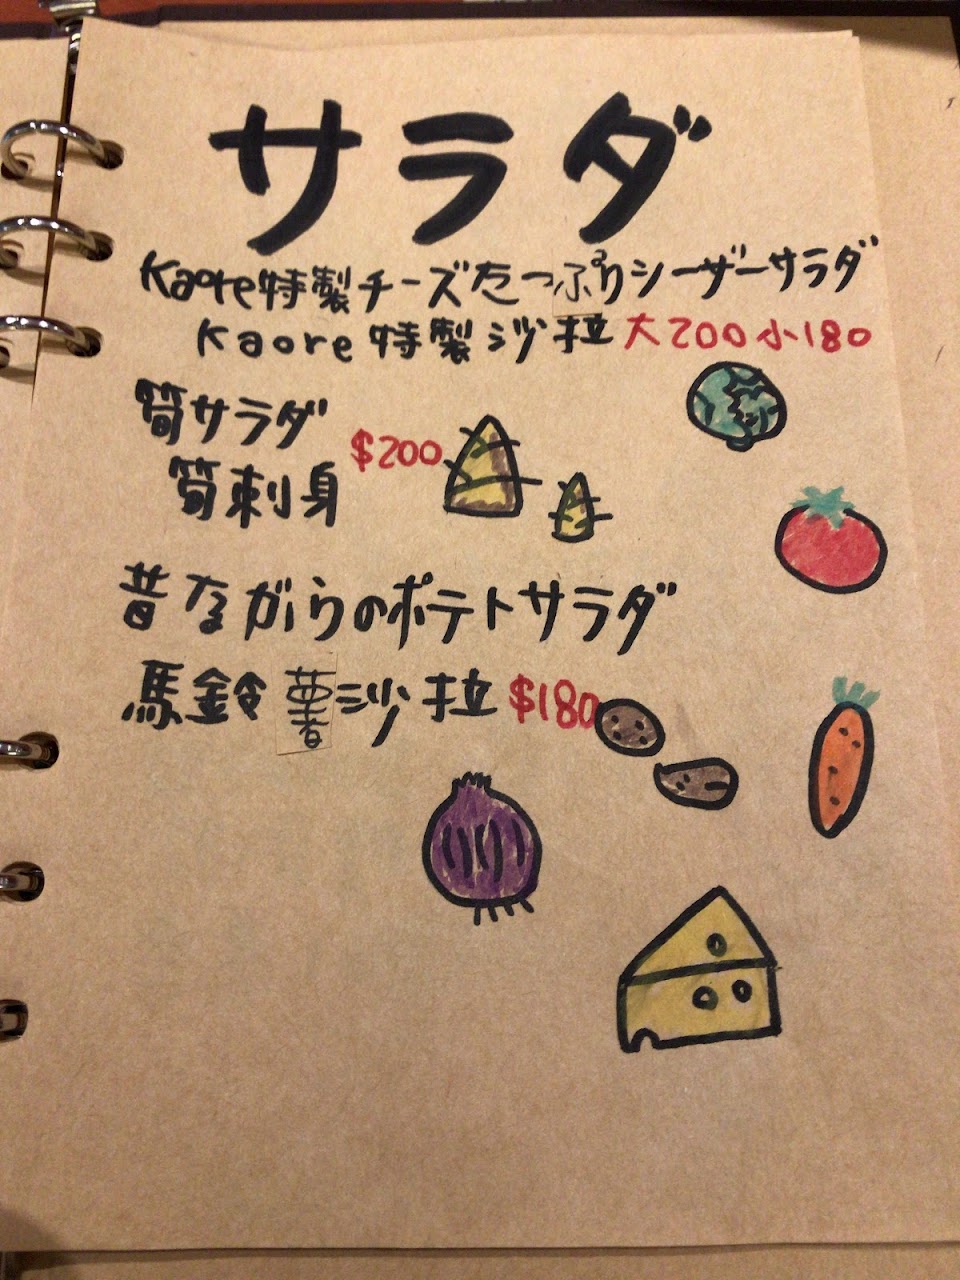 サラダ
Kaore特製チーズたっぷりシーザーサラダ
Kaore特製沙拉 大200 小180
筍サラダ
$200
筍刺身
昔ながらのポテトサラダ
馬鈴薯沙拉 $180